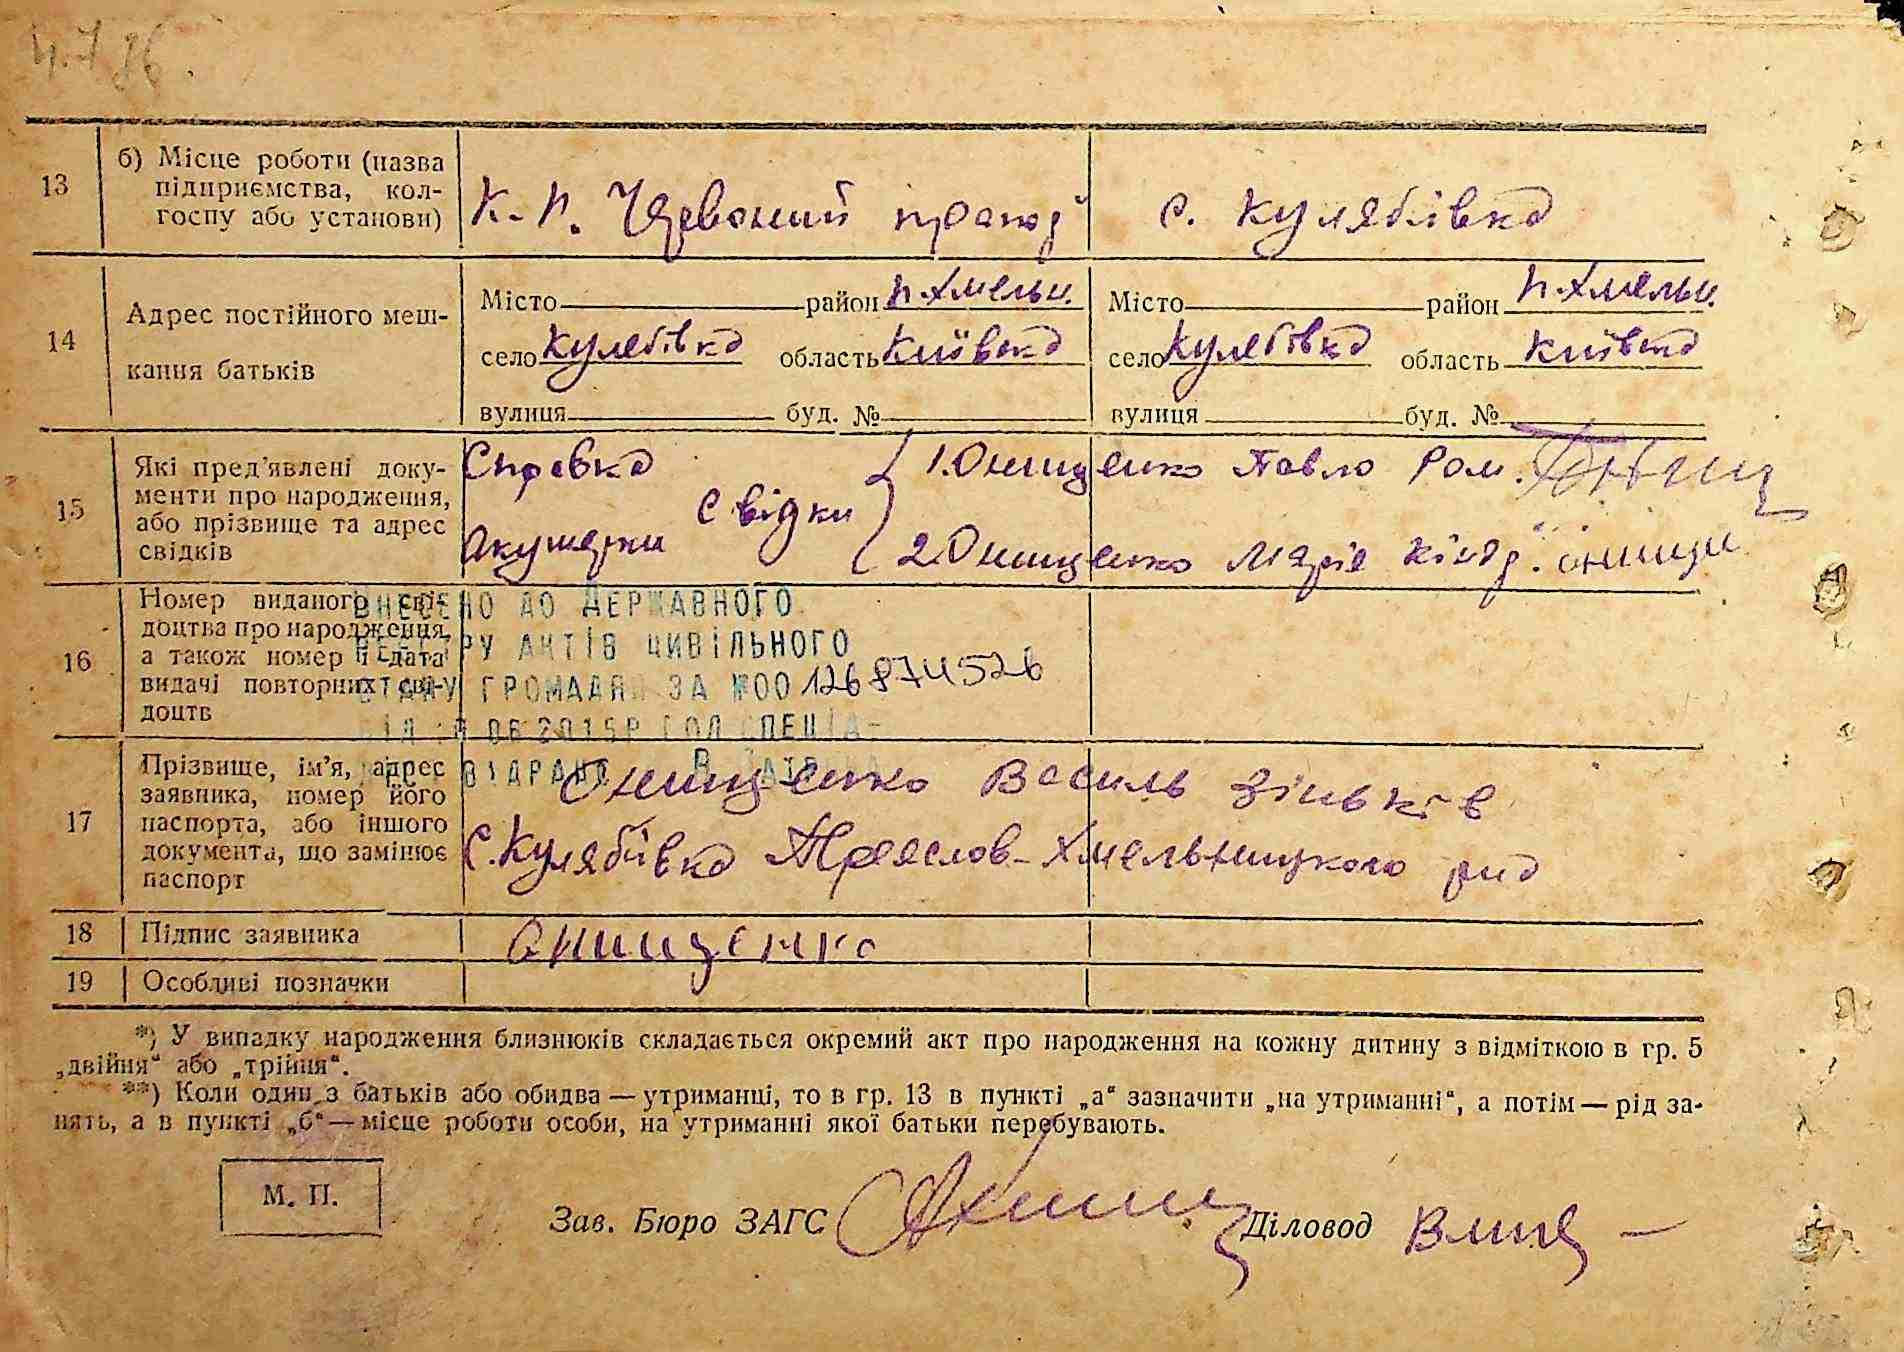 13
б) Місце роботи (назва
підприємства, кол-
госпу або установи)
К. П. Червоний прапор
с. Кулябівка
14
Адрес постійного меш-
кання батьків
Місто район П. Хмельн.
село Кулябівка область Київська
вулиця буд. №
Місто район П. Хмельн.
село Кулябівка область Київська
вулиця буд. №
15
Які пред'явлені доку-
менти про народження,
або прізвище та адрес
свідків
Справка
акушерки
Свідки
1. Онищенко Павло Ром.
2. Онищенко Марія
16
Номер виданого сві-
доцтва про народження,
а також номер і дата
видачі повторних сві-
доцтв
ВНЕСЕНО ДО ДЕРЖАВНОГО
РЕЄСТРУ АКТІВ ЦИВІЛЬНОГО
СТАНУ ГРОМАДЯН ЗА №00126874526
06 2015Р ГОЛ СПЕЦІА-
17
Прізвище, ім'я, адрес
заявника, номер його
паспорта, або іншого
документа, що замінює
паспорт
Онищенко Василь Зіньків
с. Кулябівка Переяслов-Хмельницкого
18
Підпис заявника
Онищенко
19
Особливі позначки
*) У випадку народження близнюків складається окремий акт про народження на кожну дитину з відміткою в гр. 5
„двійня“ або „трійня“.
**) Коли один з батьків або обидва — утриманці, то в гр. 13 в пункті „а“ зазначити „на утриманні“, а потім — рід за-
нять, а в пункті „б“ — місце роботи особи, на утриманні якої батьки перебувають.
М. П.
Зав. Бюро ЗАГС
Діловод